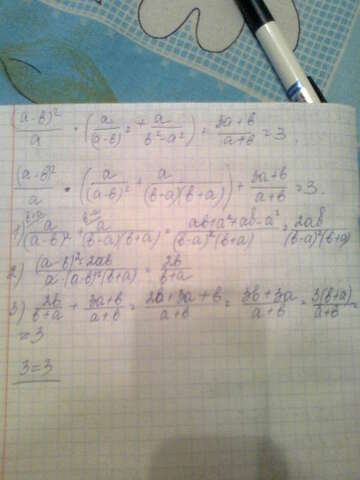 (a-b)²/a · (a/(a-b)² + a/(b²-a²)) + (3a+b)/(a+b) = 3.
(a-b)²/a · (a/(a-b)² + a/((b-a)(b+a))) + (3a+b)/(a+b) = 3.
1) a/(a-b)² + a/((b-a)(b+a)) = (ab+a²+ab-a²)/((b-a)²(b+a)) = 2ab/((b-a)²(b+a))
2) (a-b)²·2ab/(a·(a-b)²(b+a)) = 2b/(b+a)
3) 2b/(b+a) + (3a+b)/(a+b) = (2b+3a+b)/(a+b) = (3b+3a)/(a+b) = 3(b+a)/(a+b) =
= 3
3=3